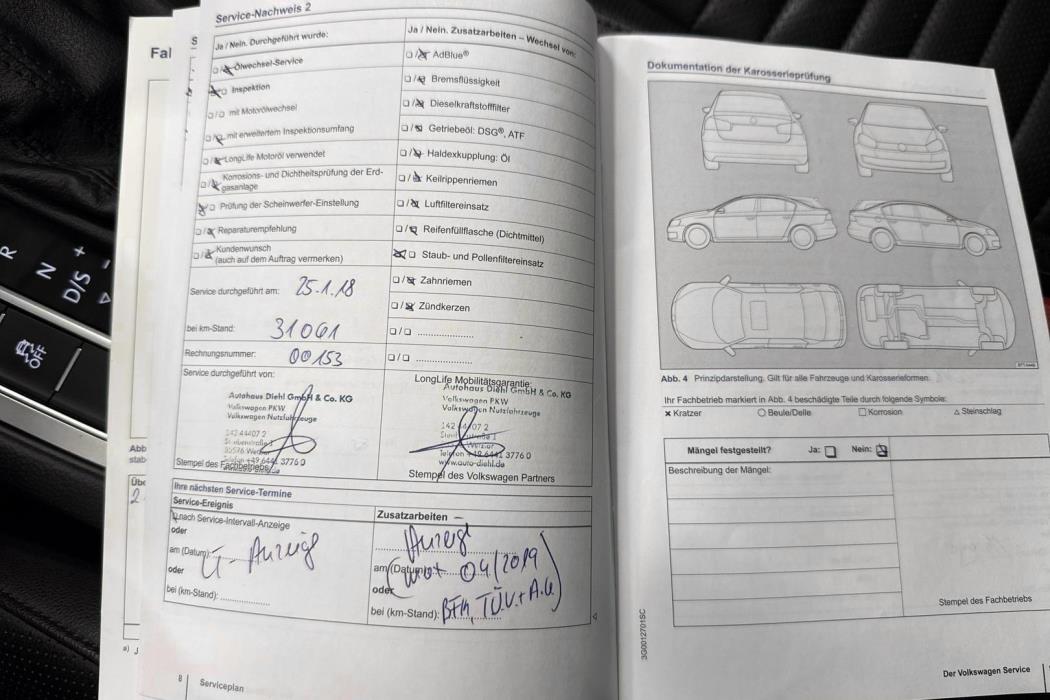 R
N
D/S
+
OFF
Fal
S
Abb
stab
Übe
2
a) J
Service-Nachweis 2
Ja / Nein. Durchgeführt wurde:
Ölwechsel-Service
Inspektion
mit Motorölwechsel
mit erweitertem Inspektionsumfang
LongLife Motoröl verwendet
Korrosions- und Dichtheitsprüfung der Erd-
gasanlage
Prüfung der Scheinwerfer-Einstellung
Reparaturempfehlung
Kundenwunsch
(auch auf dem Auftrag vermerken)
Service durchgeführt am: 25.1.18
bei km-Stand: 31061
Rechnungsnummer: 00153
Service durchgeführt von:
Autohaus Diehl GmbH & Co. KG
Volkswagen PKW
Volkswagen Nutzfahrzeuge
342 44407 2
35576 Wetzlar
Telefon +49 6441 3776 0
Stempel des Fachbetriebs
Ja / Nein. Zusatzarbeiten – Wechsel von:
AdBlue®
Bremsflüssigkeit
Dieselkraftstofffilter
Getriebeöl: DSG®, ATF
Haldexkupplung: Öl
Keilrippenriemen
Luftfiltereinsatz
Reifenfüllflasche (Dichtmittel)
Staub- und Pollenfiltereinsatz
Zahnriemen
Zündkerzen
LongLife Mobilitätsgarantie:
Autohaus Diehl GmbH & Co. KG
Volkswagen PKW
Volkswagen Nutzfahrzeuge
Telefon +49 6441 3776 0
www.auto-diehl.de
Stempel des Volkswagen Partners
Ihre nächsten Service-Termine
Service-Ereignis
nach Service-Intervall-Anzeige
oder
am (Datum):
oder
bei (km-Stand):
Zusatzarbeiten –
am (Datum): 04/2019
oder
bei (km-Stand): TÜV + A.U
8 Serviceplan
Dokumentation der Karosserieprüfung
Abb. 4 Prinzipdarstellung. Gilt für alle Fahrzeuge und Karosserieformen.
Ihr Fachbetrieb markiert in Abb. 4 beschädigte Teile durch folgende Symbole:
× Kratzer ○ Beule/Delle □ Korrosion △ Steinschlag
Mängel festgestellt? Ja: Nein:
Beschreibung der Mängel:
Stempel des Fachbetriebs
3G0012701SC
Der Volkswagen Service